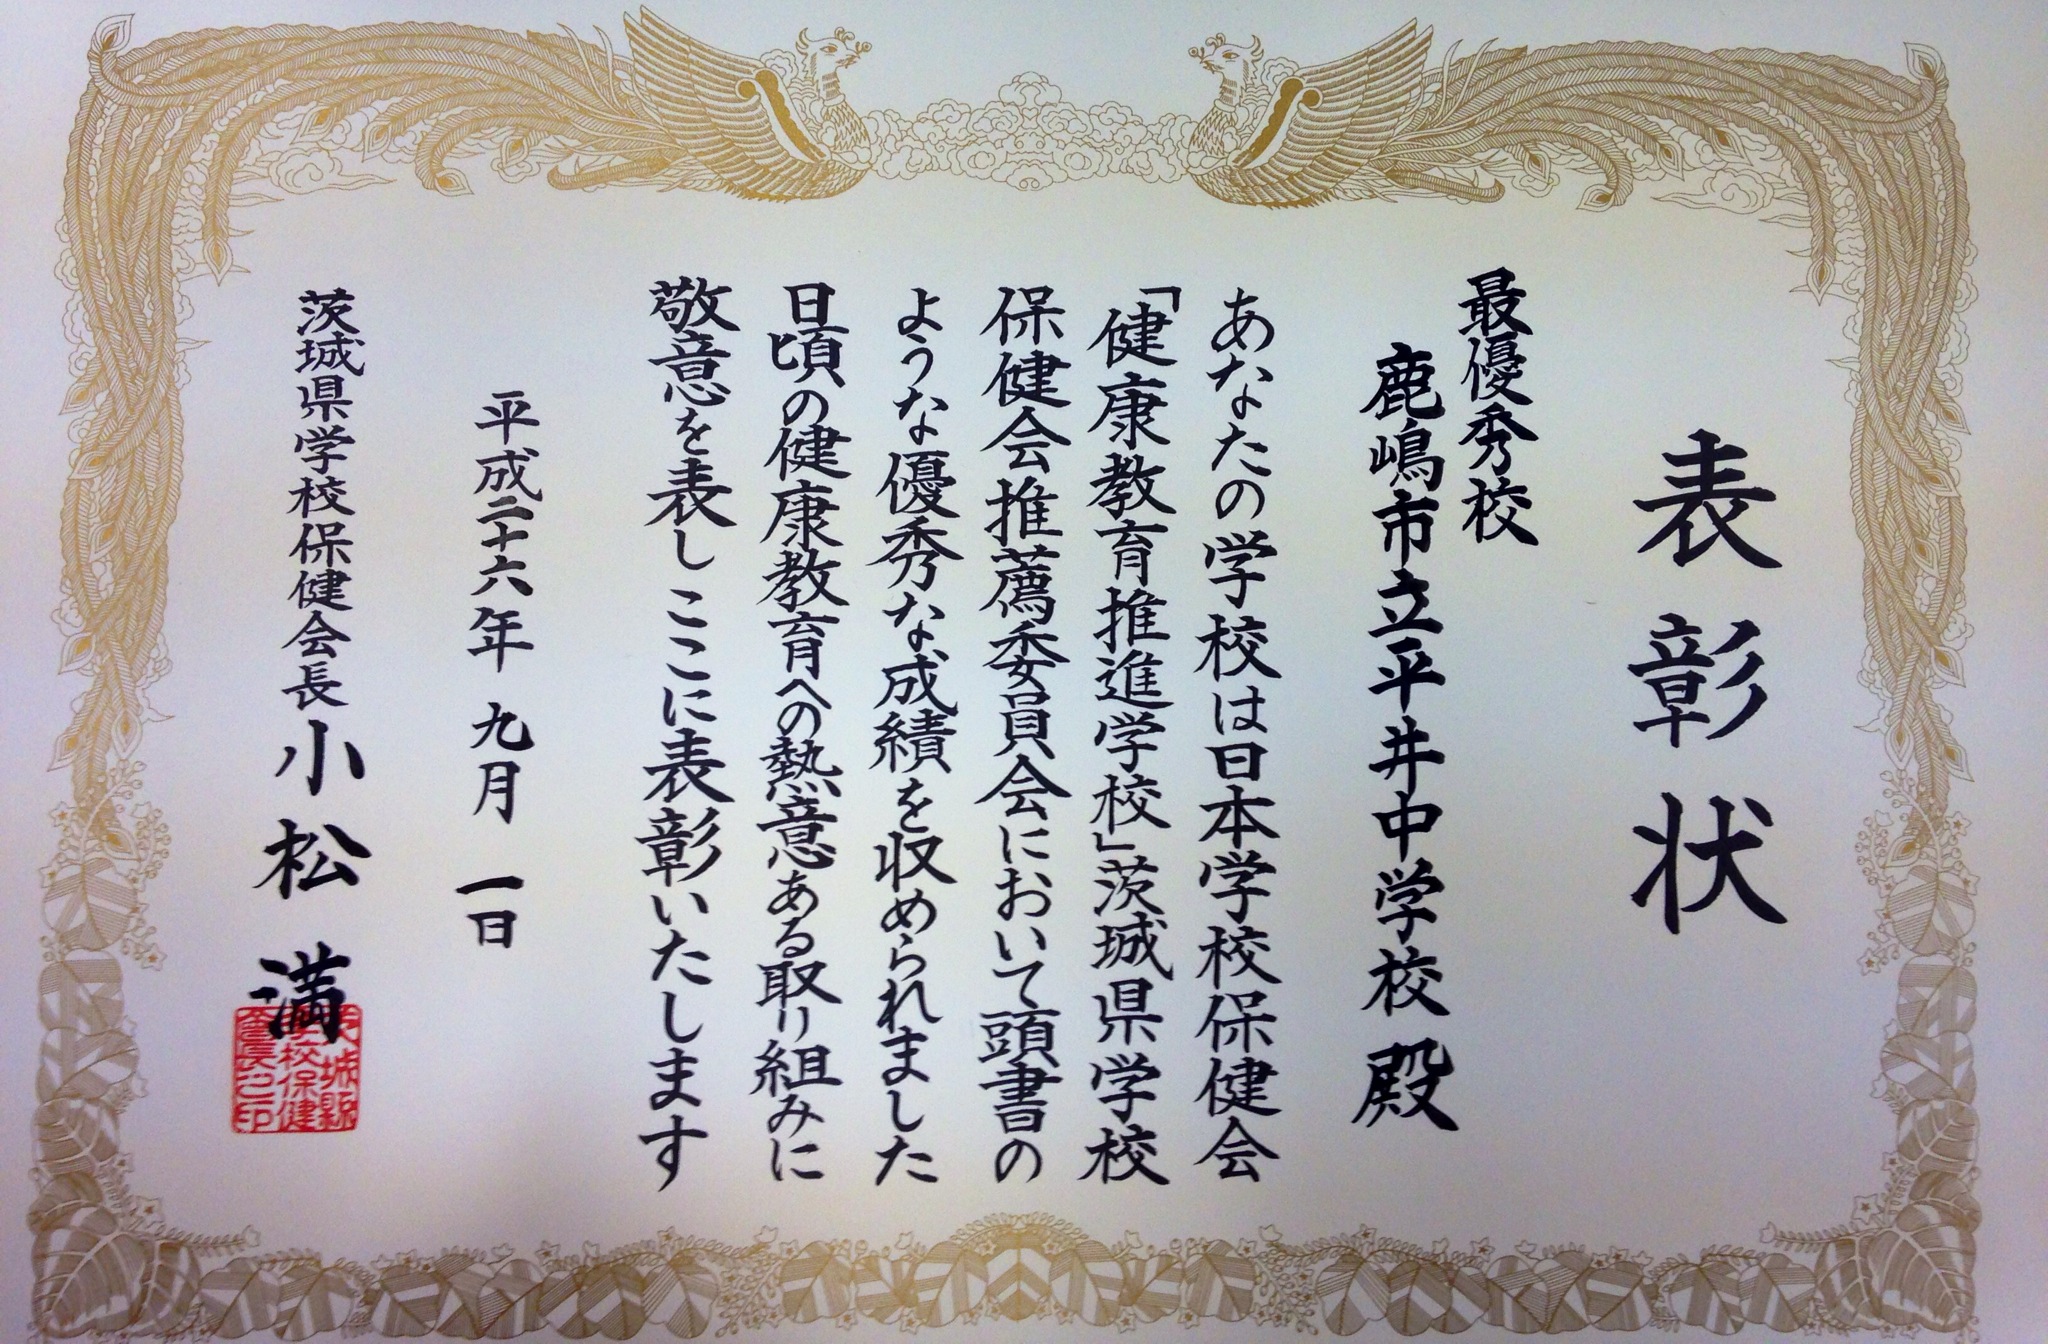 表彰状
最優秀校
鹿嶋市立平井中学校 殿
あなたの学校は日本学校保健会
「健康教育推進学校」茨城県学校
保健会推薦委員会において頭書の
ような優秀な成績を収められました
日頃の健康教育への熱意ある取り組みに
敬意を表しここに表彰いたします
平成二十六年 九月 一日
茨城県学校保健会長 小松 満
茨城縣
学校保健
會長之印